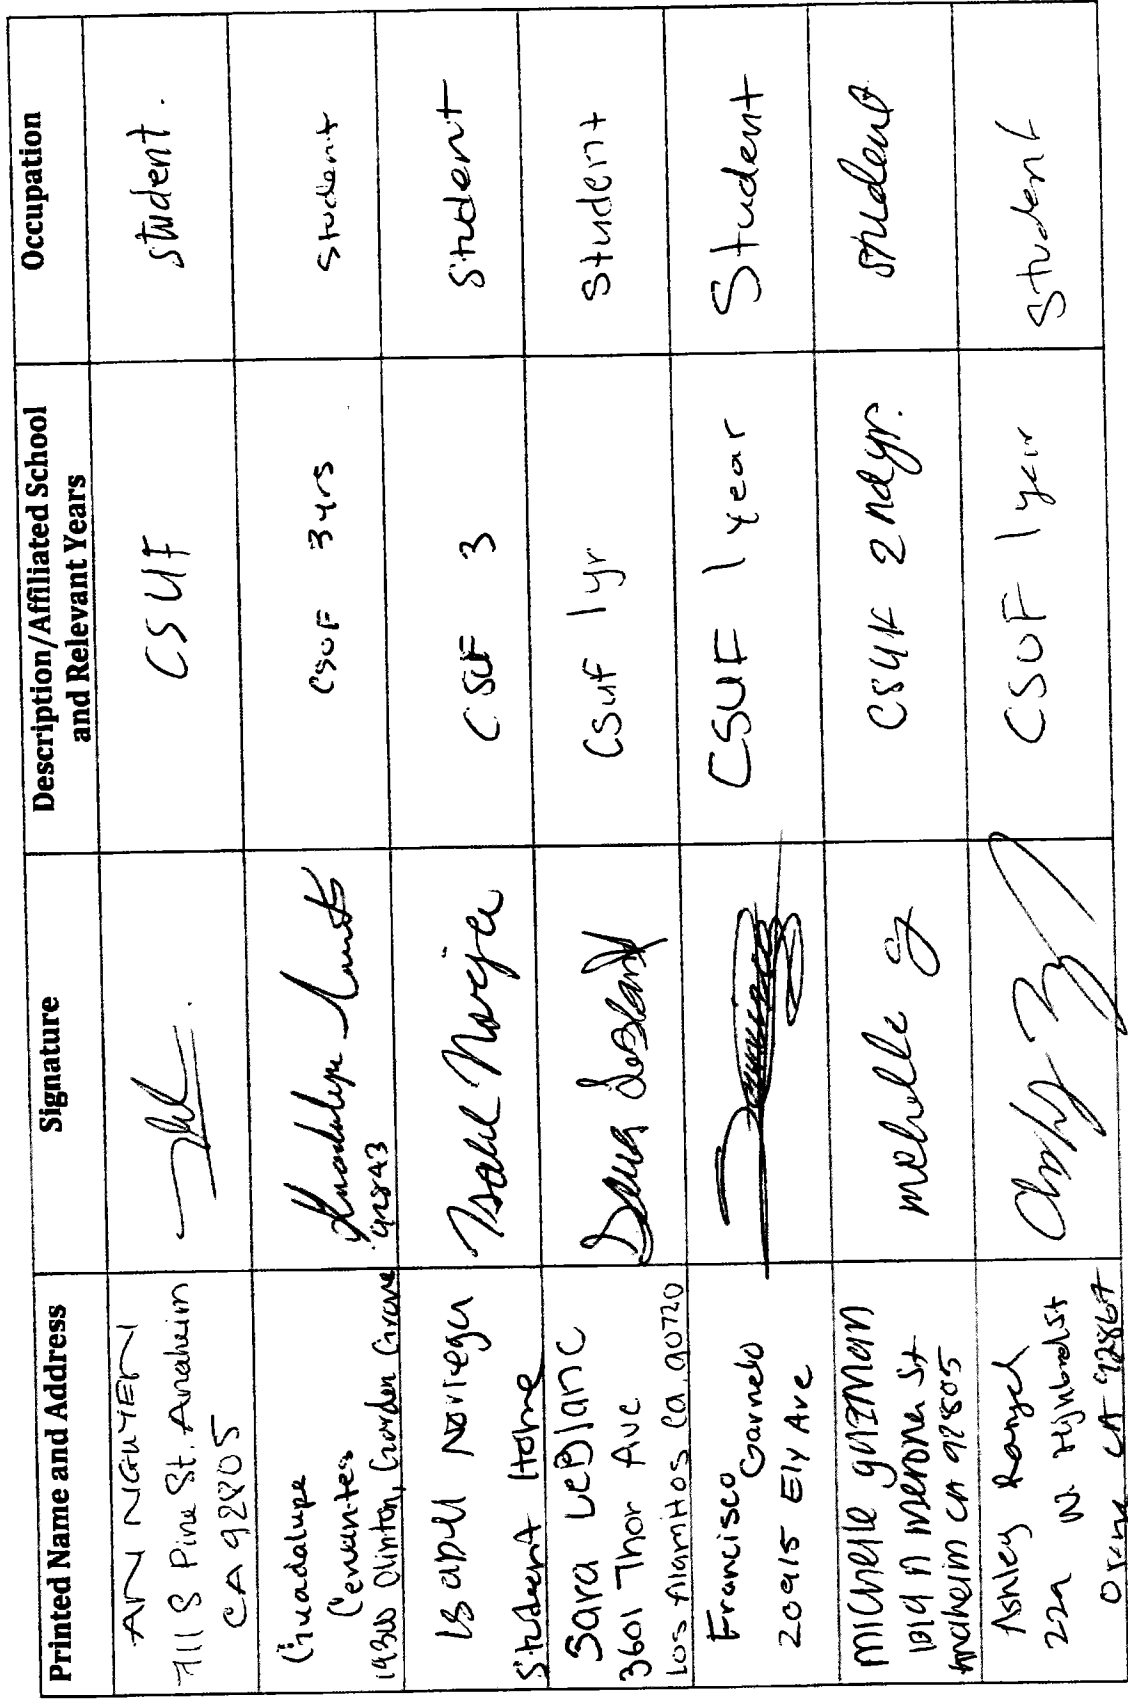 Printed Name and Address
Signature
Description/Affiliated School
and Relevant Years
Occupation
AN NGUYEN
711 S Pine St. Anaheim
CA 92805
CSUF
student.
Guadalupe
Cervantes
Clinton, Garden Grove
92843
CSUF 3yrs
Student
Isabell Noriega
Student Home
Isabel Noriega
CSUF 3
Student
Sara LeBlanc
3601 Thor Ave
Los Alamitos Ca. 90720
Sara LeBlanc
CSUF 1yr
Student
Francisco
Garnelo
20915 Ely Ave
CSUF 1 year
Student
Michelle guzman
N merona St
Anaheim CA 92805
michelle g
CSUF 2nd yr.
student
Ashley Rangel
W.
CA 92867
CSUF 1 year
Student